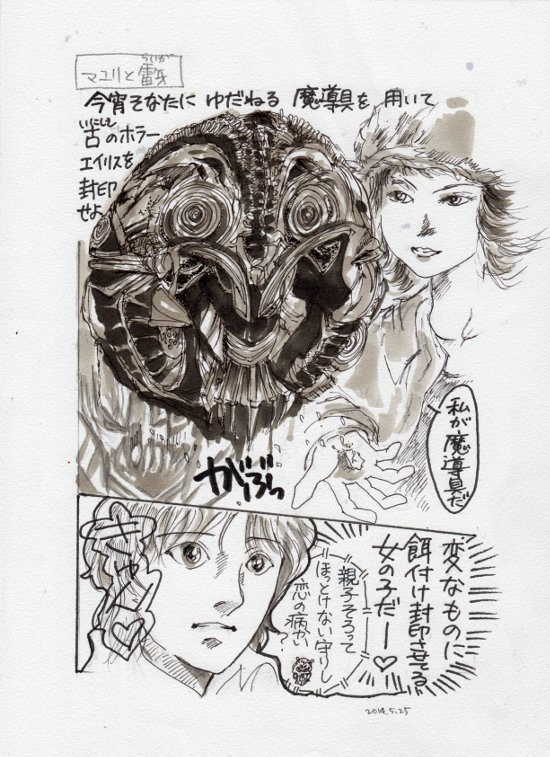 らいが
マユリと雷牙
今宵そなたに ゆだねる 魔導具を 用いて
いにしえ
古のホラー
エイリスを
封印
せよ
私が魔導具だ
がぶっ
変なものに
餌付け封印させてる
女の子だー♡
親子そろって
ほっとけない守りし
恋の病かい
?
キャー♡
2014.5.25